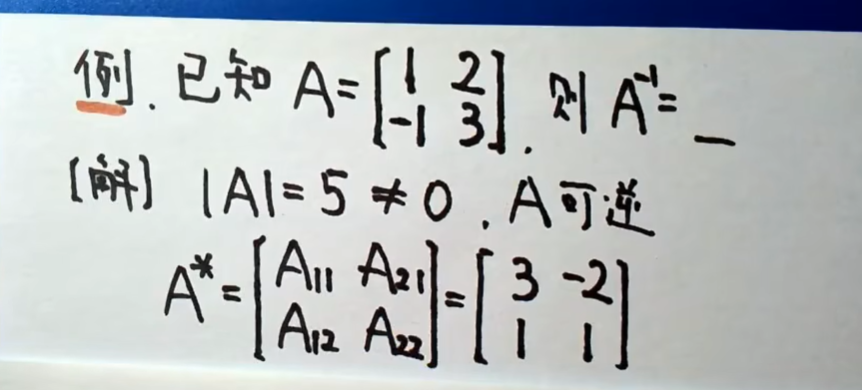 例. 已知 A=[1 2; -1 3]. 则 A⁻¹= _
[解] |A|=5≠0. A可逆
A*=[A₁₁ A₂₁; A₁₂ A₂₂]=[3 -2; 1 1]